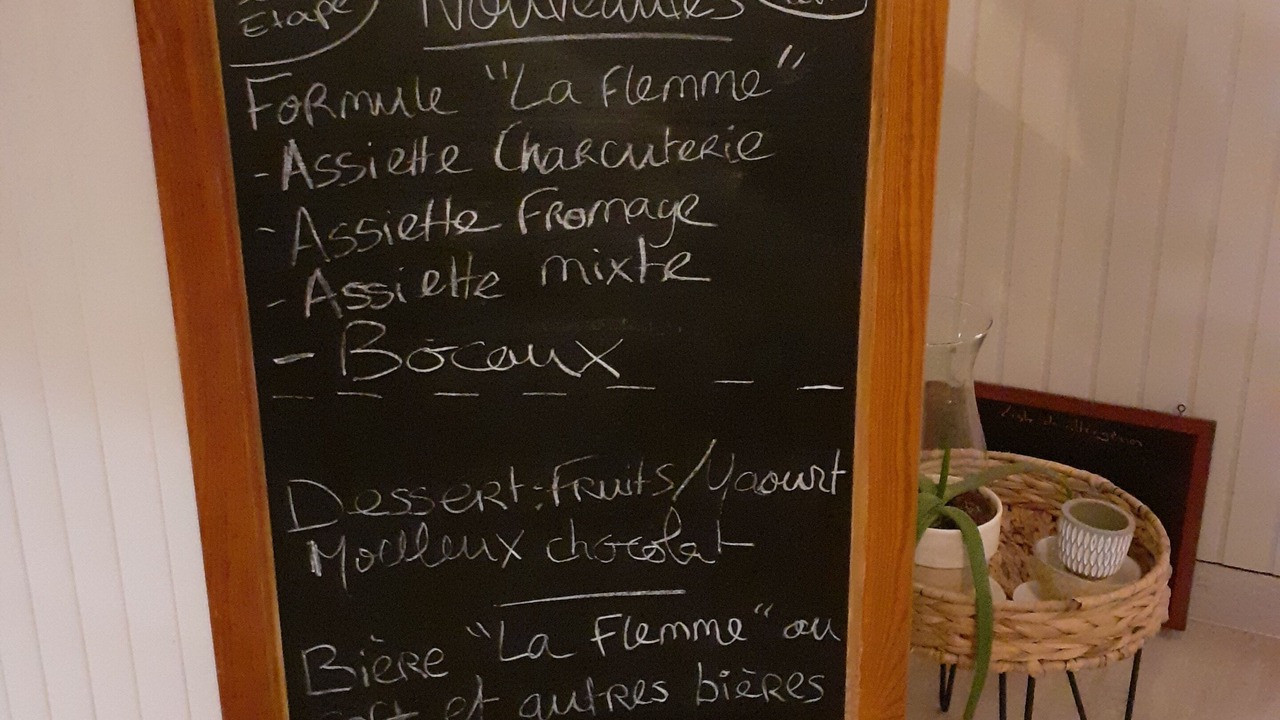 Étape
Nouveautés
Formule "La Flemme"
- Assiette Charcuterie
- Assiette Fromage
- Assiette mixte
- Bocaux
Dessert: Fruits/Yaourt
Moelleux chocolat
Bière "La Flemme" ou
et autres bières